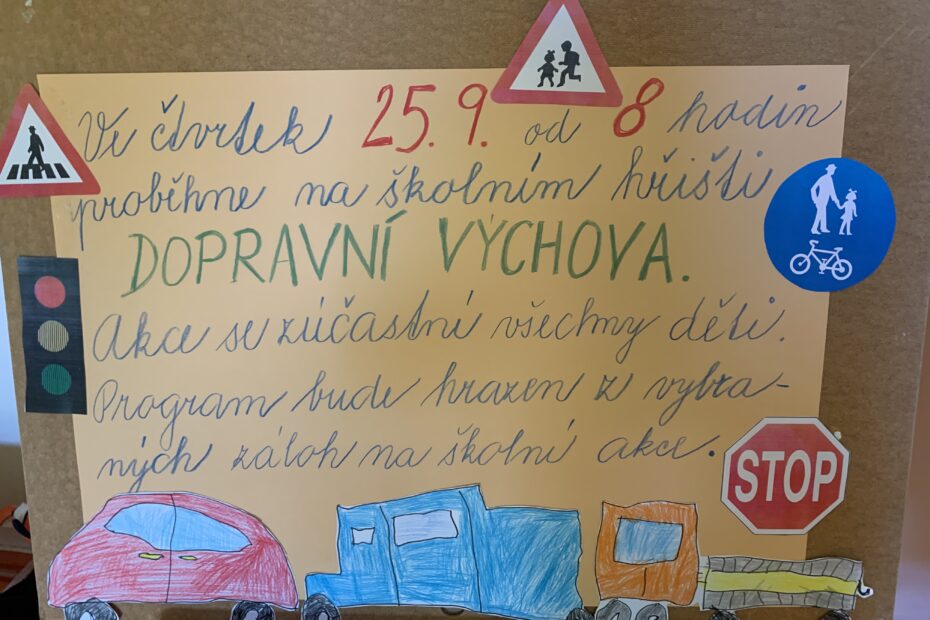 Ve čtvrtek 25. 9. od 8 hodin
proběhne na školním hřišti
DOPRAVNÍ VÝCHOVA.
Akce se zúčastní všechny děti.
Program bude hrazen z vybra-
ných záloh na školní akce.
STOP